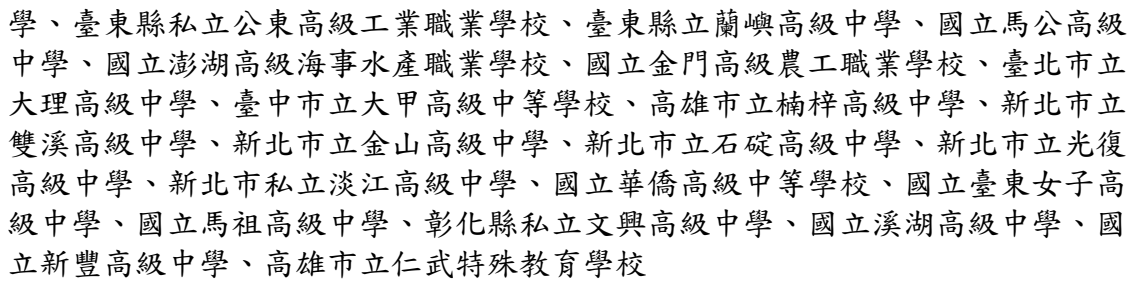 學、臺東縣私立公東高級工業職業學校、臺東縣立蘭嶼高級中學、國立馬公高級
中學、國立澎湖高級海事水產職業學校、國立金門高級農工職業學校、臺北市立
大理高級中學、臺中市立大甲高級中等學校、高雄市立楠梓高級中學、新北市立
雙溪高級中學、新北市立金山高級中學、新北市立石碇高級中學、新北市立光復
高級中學、新北市私立淡江高級中學、國立華僑高級中等學校、國立臺東女子高
級中學、國立馬祖高級中學、彰化縣私立文興高級中學、國立溪湖高級中學、國
立新豐高級中學、高雄市立仁武特殊教育學校